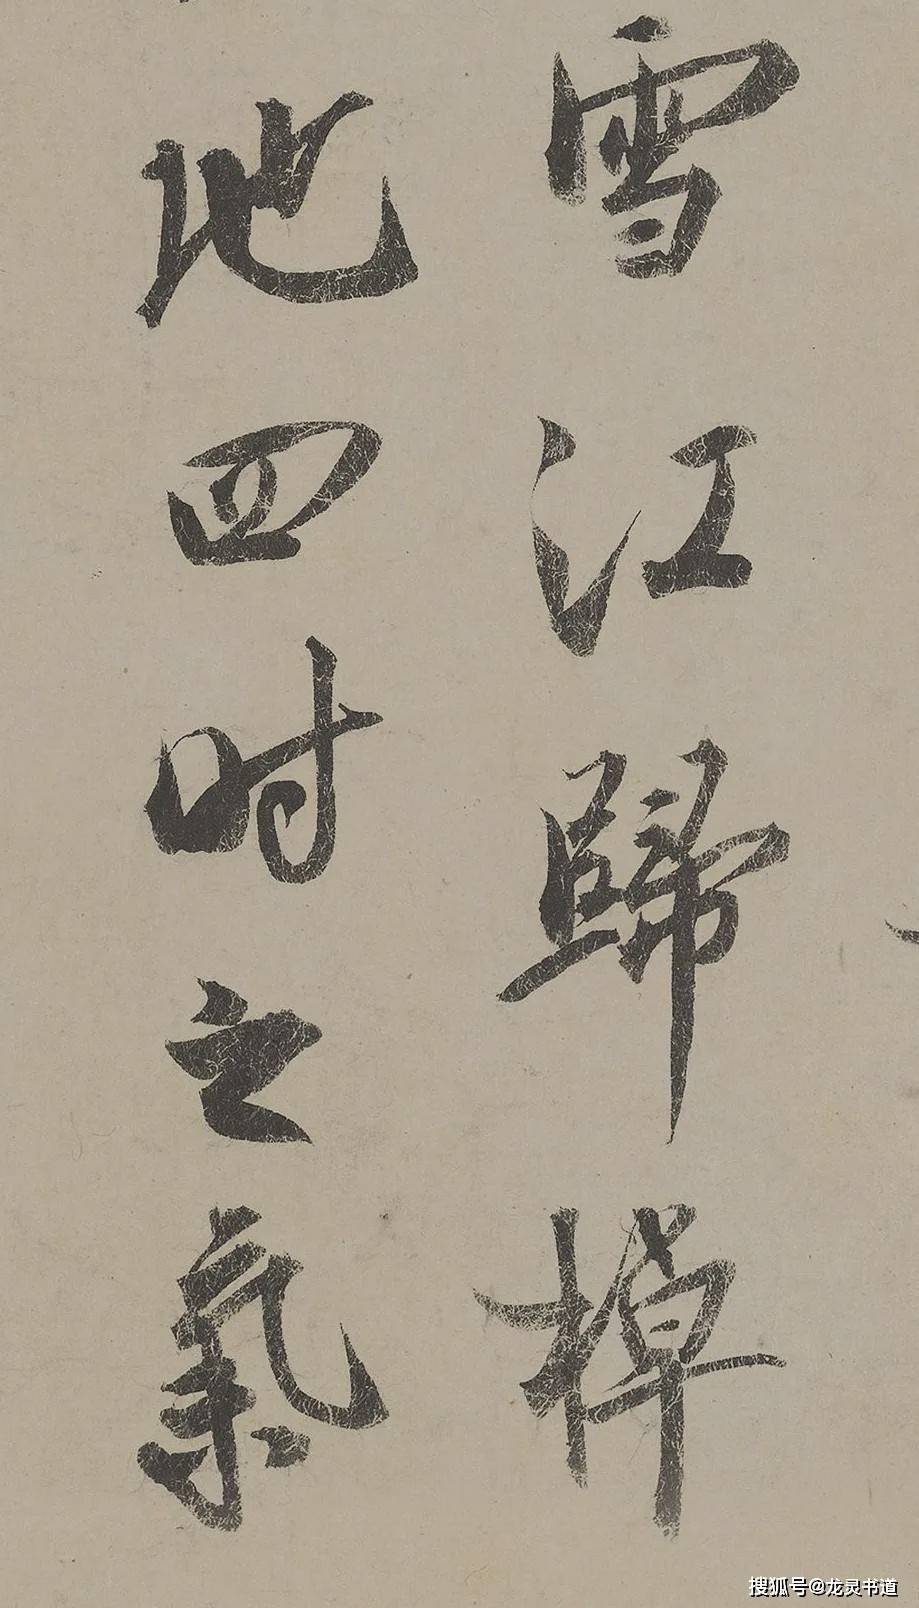 雪江歸棹
地四时之氣
搜狐号@龙灵书道